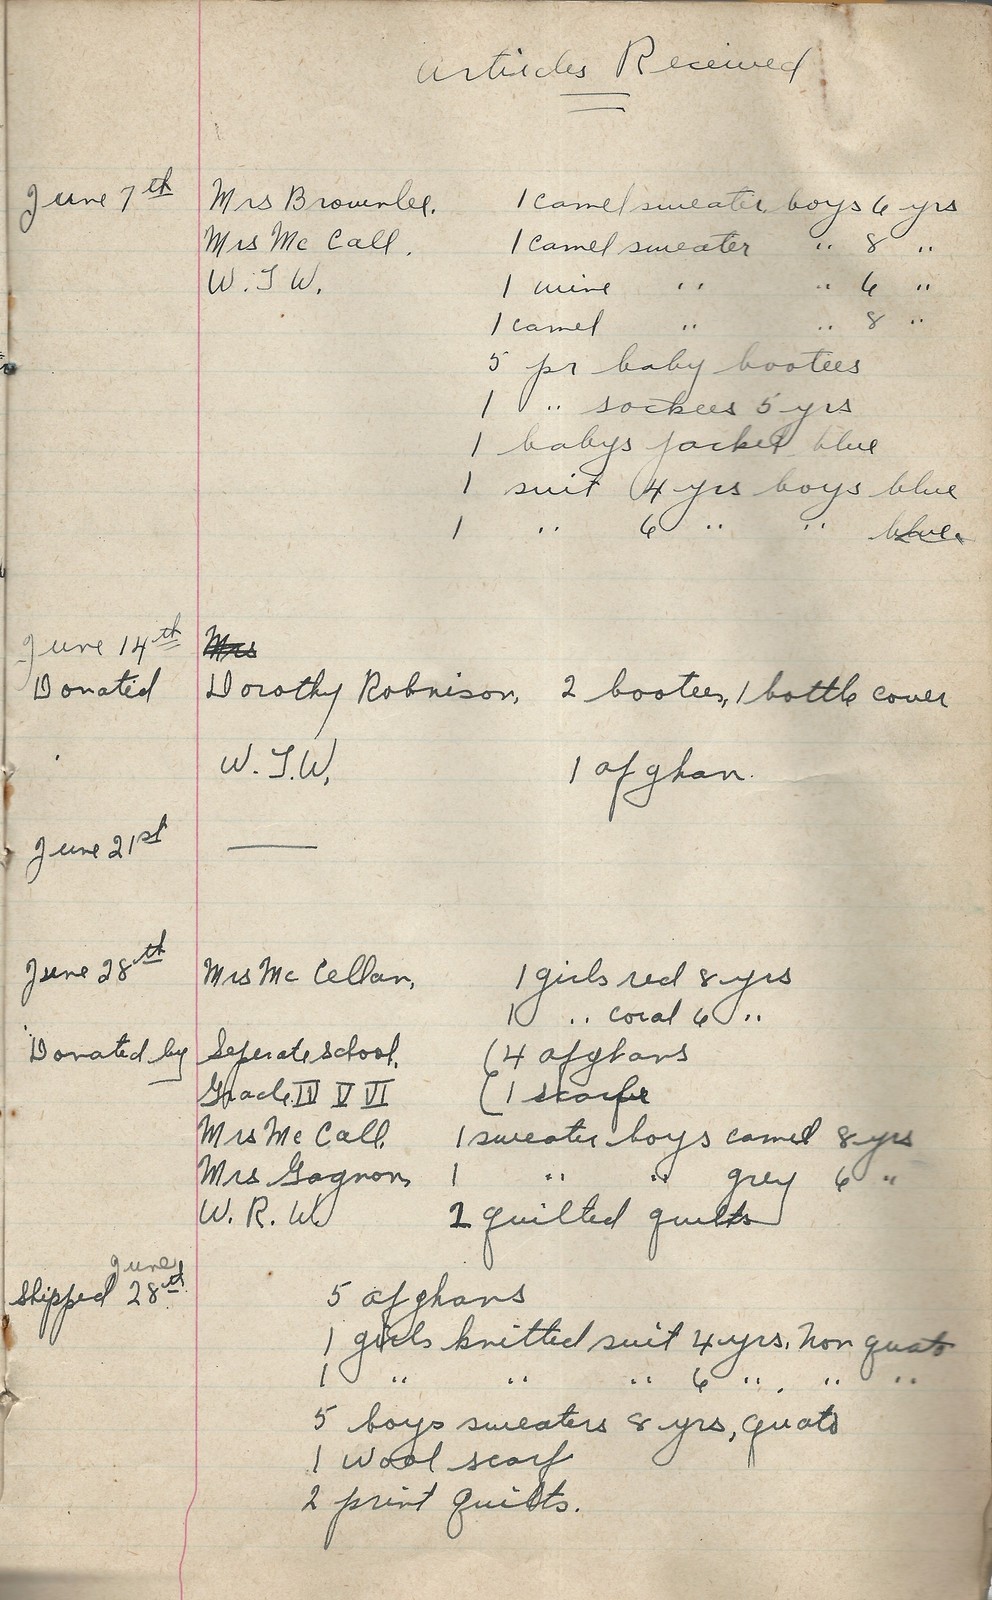 Articles Received
June 7th Mrs Brownlee. 1 camel sweater boys 6 yrs
Mrs Mc Call. 1 camel sweater " 8 "
W. I W. 1 wine " " 6 "
1 camel " " 8 "
5 pr baby bootees
1 " sockees 5 yrs
1 babys jacket blue
1 suit 4 yrs boys blue
1 " 6 " " blue.
June 14th Mrs
Donated Dorothy Robnison, 2 bootees, 1 bottle cover
W. I. W. 1 afghan.
June 21st —
June 28th Mrs Mc Cellan, 1 girls red 8 yrs
1 " coral 6 "
Donated by Seperate school. (4 afghans
Grade IV V VI (1 scarfe
Mrs Mc Call. 1 sweater boys camel 8 yrs
Mrs Gagnon, 1 " " grey 6 "
W. R. W. 2 quilted quilts
June
Shipped 28th 5 afghans
1 girls knitted suit 4 yrs. Non quato
1 " " " 6 ". " "
5 boys sweaters 8 yrs, quato
1 wool scarf
2 print quilts.